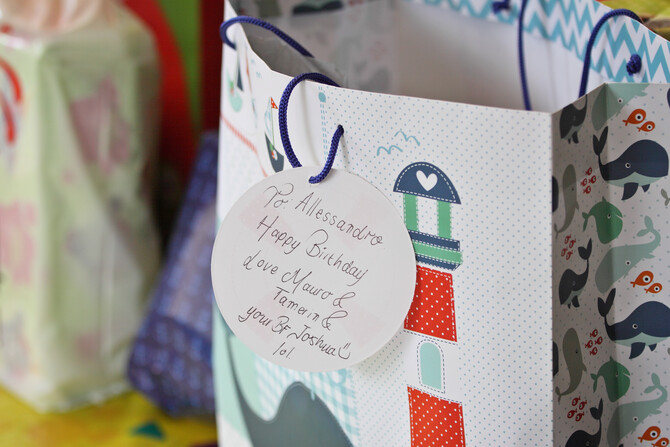 To Allessandro
Happy Birthday
Love Mauro &
Tamerin &
your BF Joshua☺
lol